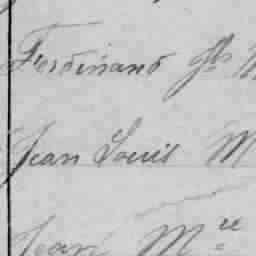 Ferdinand fils M
Jean Louis M
Jean Mce